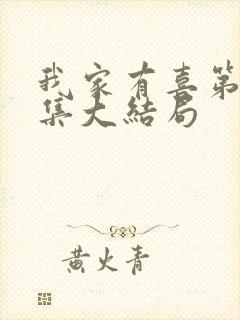 我家有喜第
集大结局
黄火青